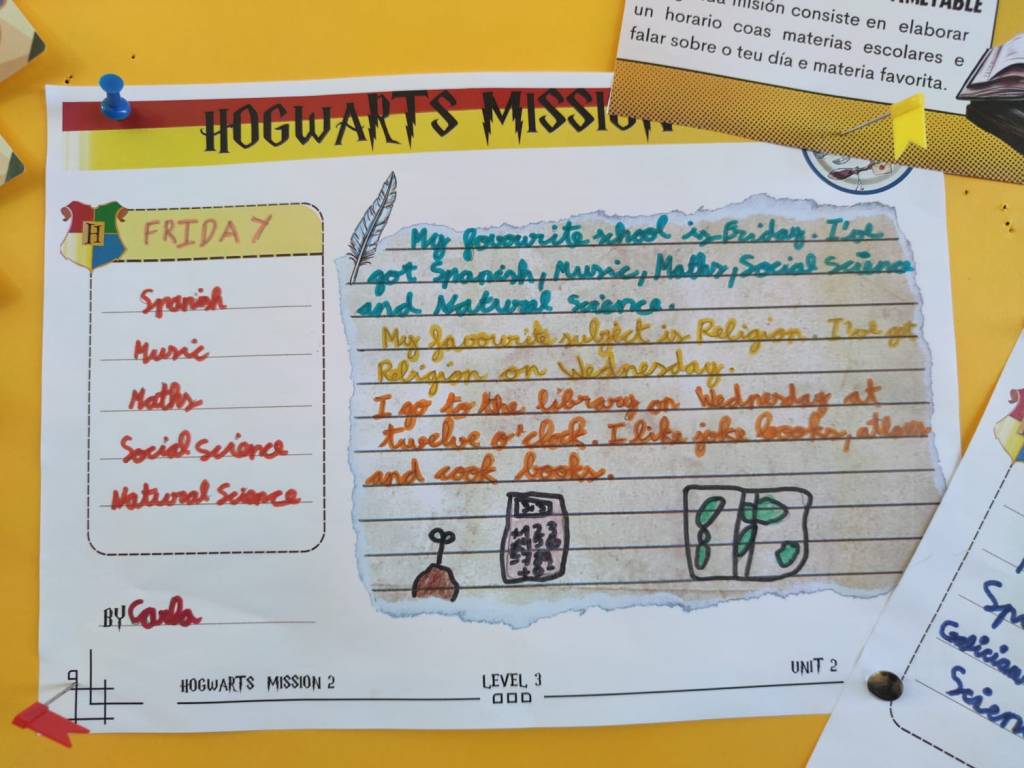 TIMETABLE
misión consiste en elaborar
un horario coas materias escolares e
falar sobre o teu día e materia favorita.
HOGWARTS MISSION
H
FRIDAY
Spanish
Music
Maths
Social Science
Natural Science
BY Carla
My favourite school is Friday. I've
got Spanish, Music, Maths, Social Science
and Natural Science.
My favourite subject is Religion. I've got
Religion on Wednesday.
I go to the library on Wednesday at
twelve o'clock. I like joke books, atlases
and cook books.
HOGWARTS MISSION 2
LEVEL 3
UNIT 2